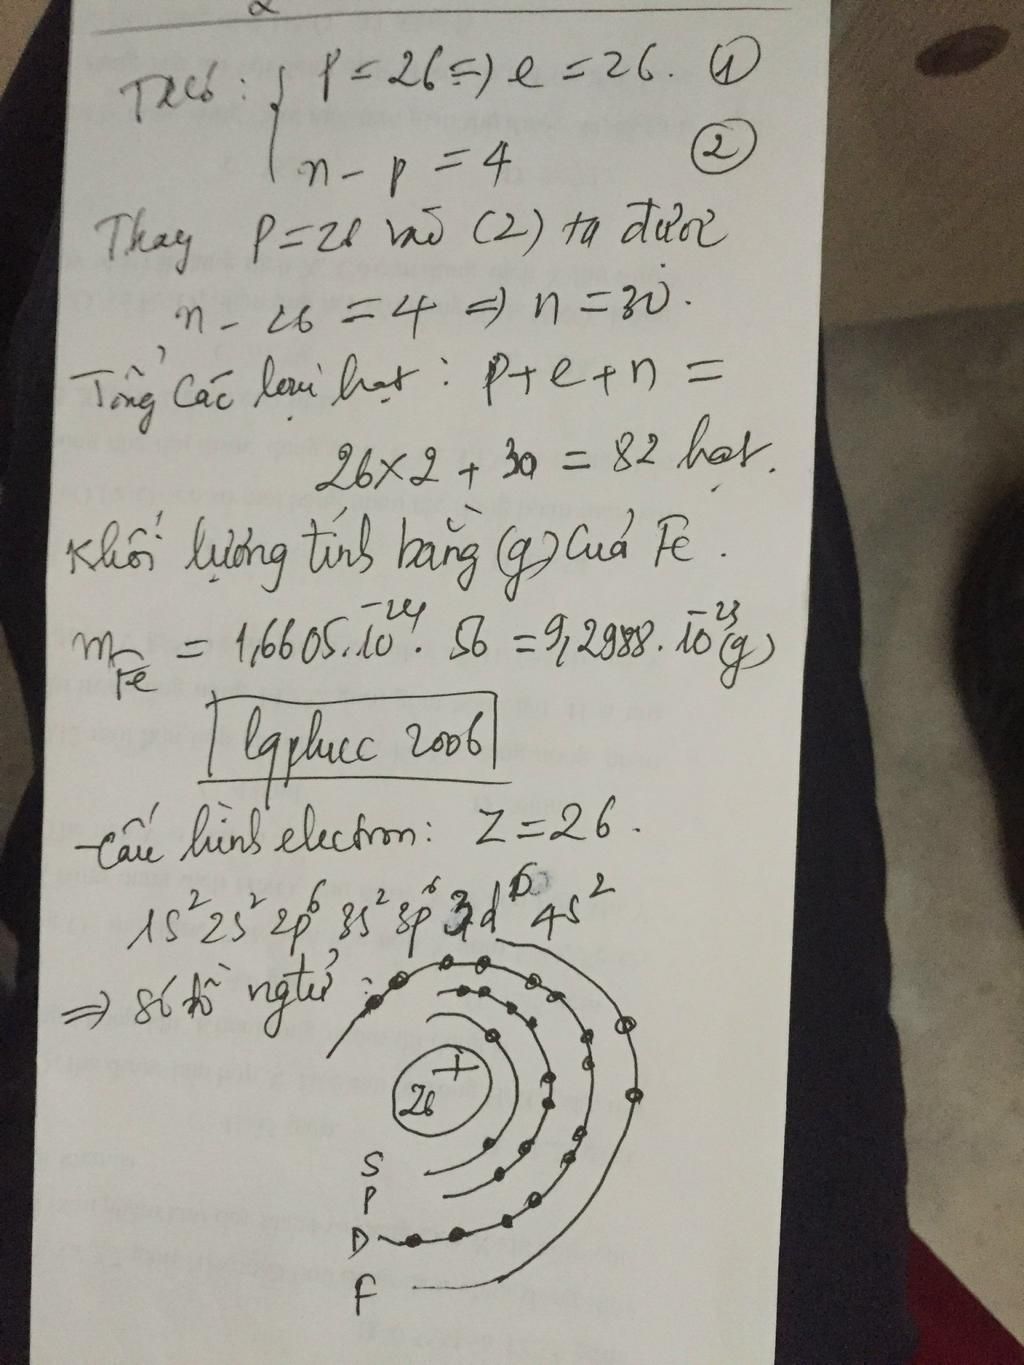 Ta có: { p = 26 => e = 26. (1)
n - p = 4 (2)
Thay p = 26 vào (2) ta được
n - 26 = 4 => n = 30.
Tổng các loại hạt: p + e + n =
26 x 2 + 30 = 82 hạt.
Khối lượng tính bằng (g) của Fe.
mFe = 1,6605.10⁻²⁴. 56 = 9,2988.10⁻²³(g)
lqphucc 2006
- Cấu hình electron: Z = 26.
1s² 2s² 2p⁶ 3s² 3p⁶ 3d⁶ 4s²
=> Sơ đồ ngtử:
26+
S
P
D
F